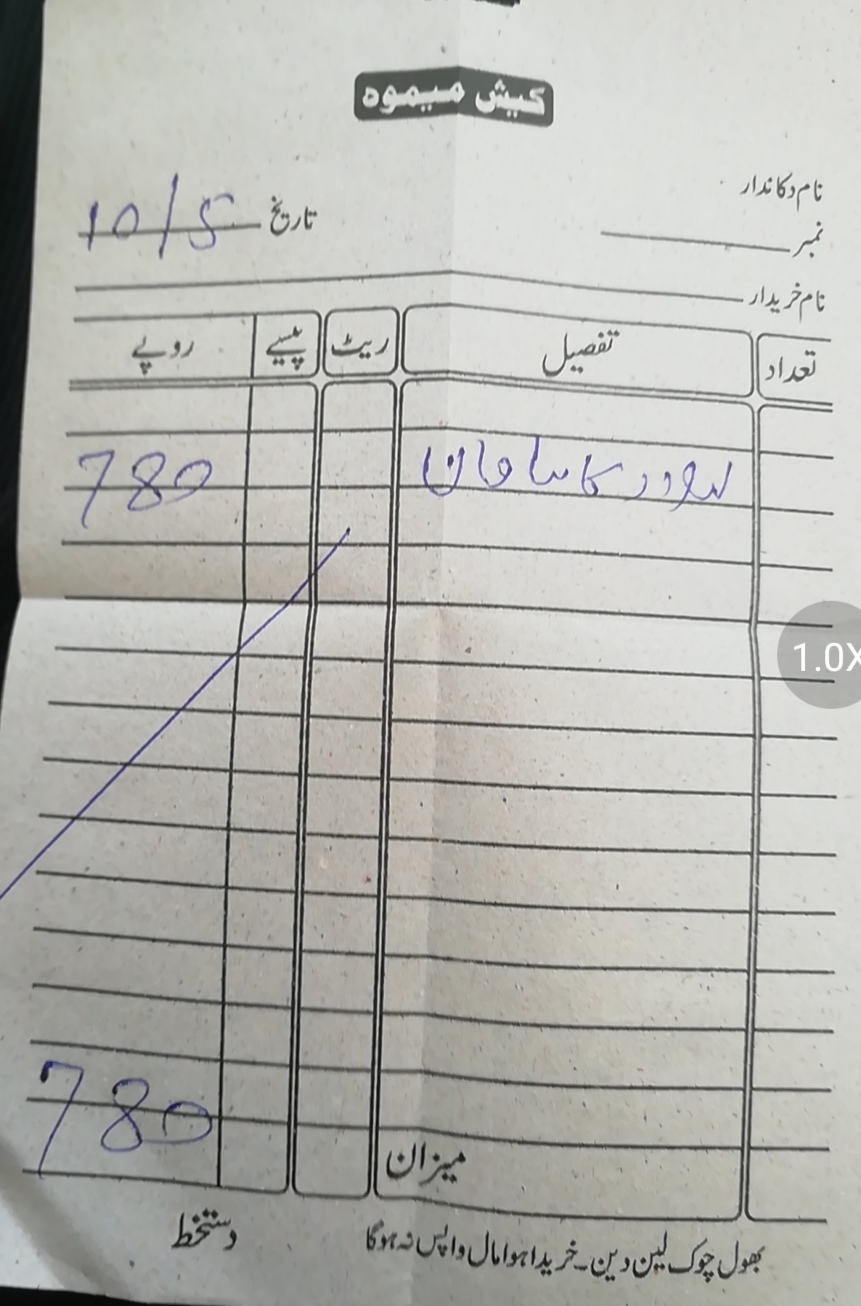 کیش میمو
نام دکاندار
نمبر
تاریخ 10/5
نام خریدار
تعداد تفصیل ریٹ پیسے روپے
کا سامان 780
میزان 780
بھول چوک لین دین۔خریدا ہوا مال واپس نہ ہوگا
دستخط
1.0X